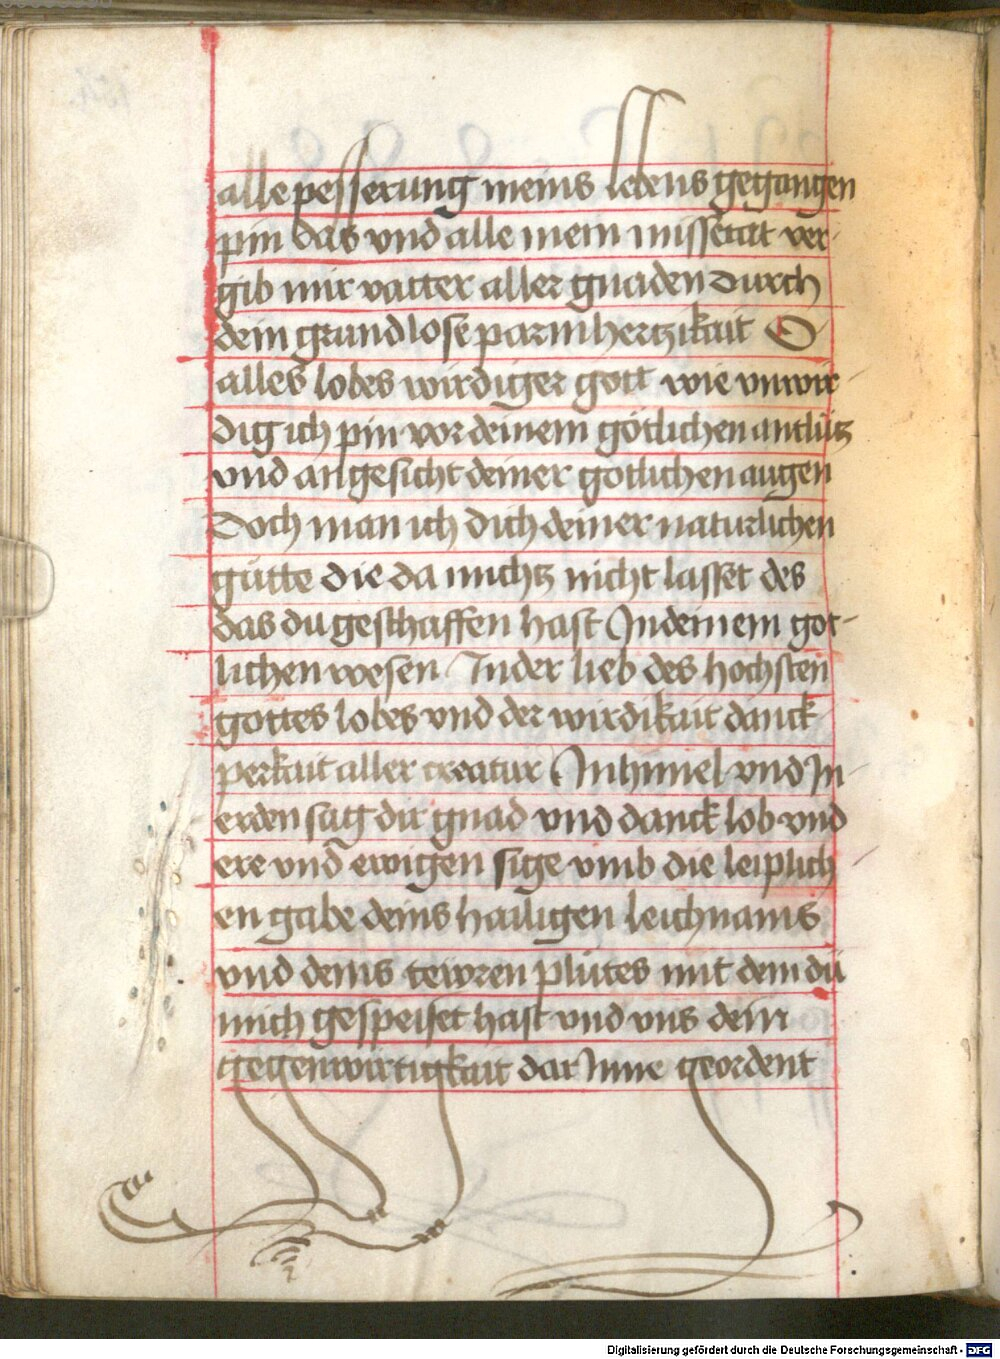 alle pesserung meins lebens gegangen
pin das vnd alle mein missetat ver-
gib mir vatter aller gnaden durch
dein grundlose parmhertzikait O
alles lobes wirdiger gott wie vnwir-
dig ich pin vor deinem götlichen antlütz
vnd angesicht deiner gotlichen augen
Doch man ich dich deiner naturlichen
gütte die da nichtz nicht lasset des
das du geschaffen hast In deinem got-
lichen wesen In der lieb des hochsten
gottes lobes vnd der wirdikait danck
perkait aller creatur In himel vnd In-
erden sag dir gnad vnd danck lob vnd
ere vnd ewigen sige vmb die leiplich
en gabe deins hailigen leichnams
vnd deins tewren plutes mit dem du
mich gespeiset hast vnd vns dein
gegenwirtigkait dar Inne geordent
Digitalisierung gefördert durch die Deutsche Forschungsgemeinschaft - DFG